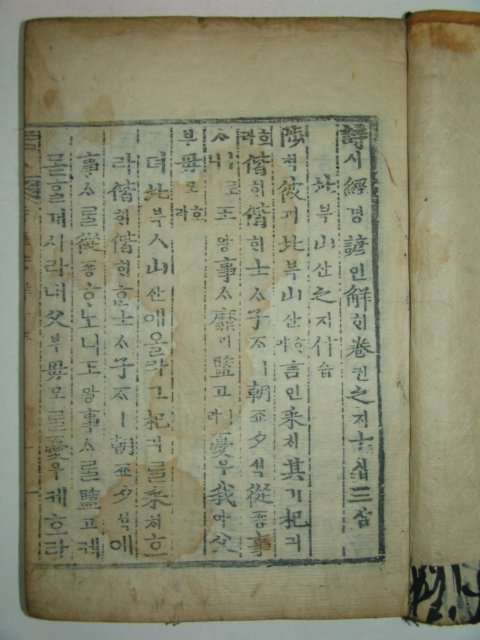 詩시經경諺언解ᄒᆡ卷권之지十십三삼
北북山산之지什습
陟쳑彼피北북山산ᄒᆞ야言언采ᄎᆡ其기杞긔
호라偕ᄒᆡ偕ᄒᆡᄒᆞᆫ士ᄉᆞ子ᄌᆞㅣ朝죠夕셕從죵事
ᄉᆞㅣ로니王왕事ᄉᆞ靡미盬고ㅣ라憂우我아父
부母모호라
뎌北북ㅅ山산애올라그杞긔ᄅᆞᆯ采ᄎᆡ호
라偕ᄒᆡ偕ᄒᆡᄒᆞᆫ士ᄉᆞ子ᄌᆞㅣ朝죠夕셕에
事ᄉᆞᄅᆞᆯ從죵ᄒᆞ노니王왕事ᄉᆞᄅᆞᆯ盬고케
몯ᄒᆞᆯ께시라내父부母모ᄅᆞᆯ憂우케호라